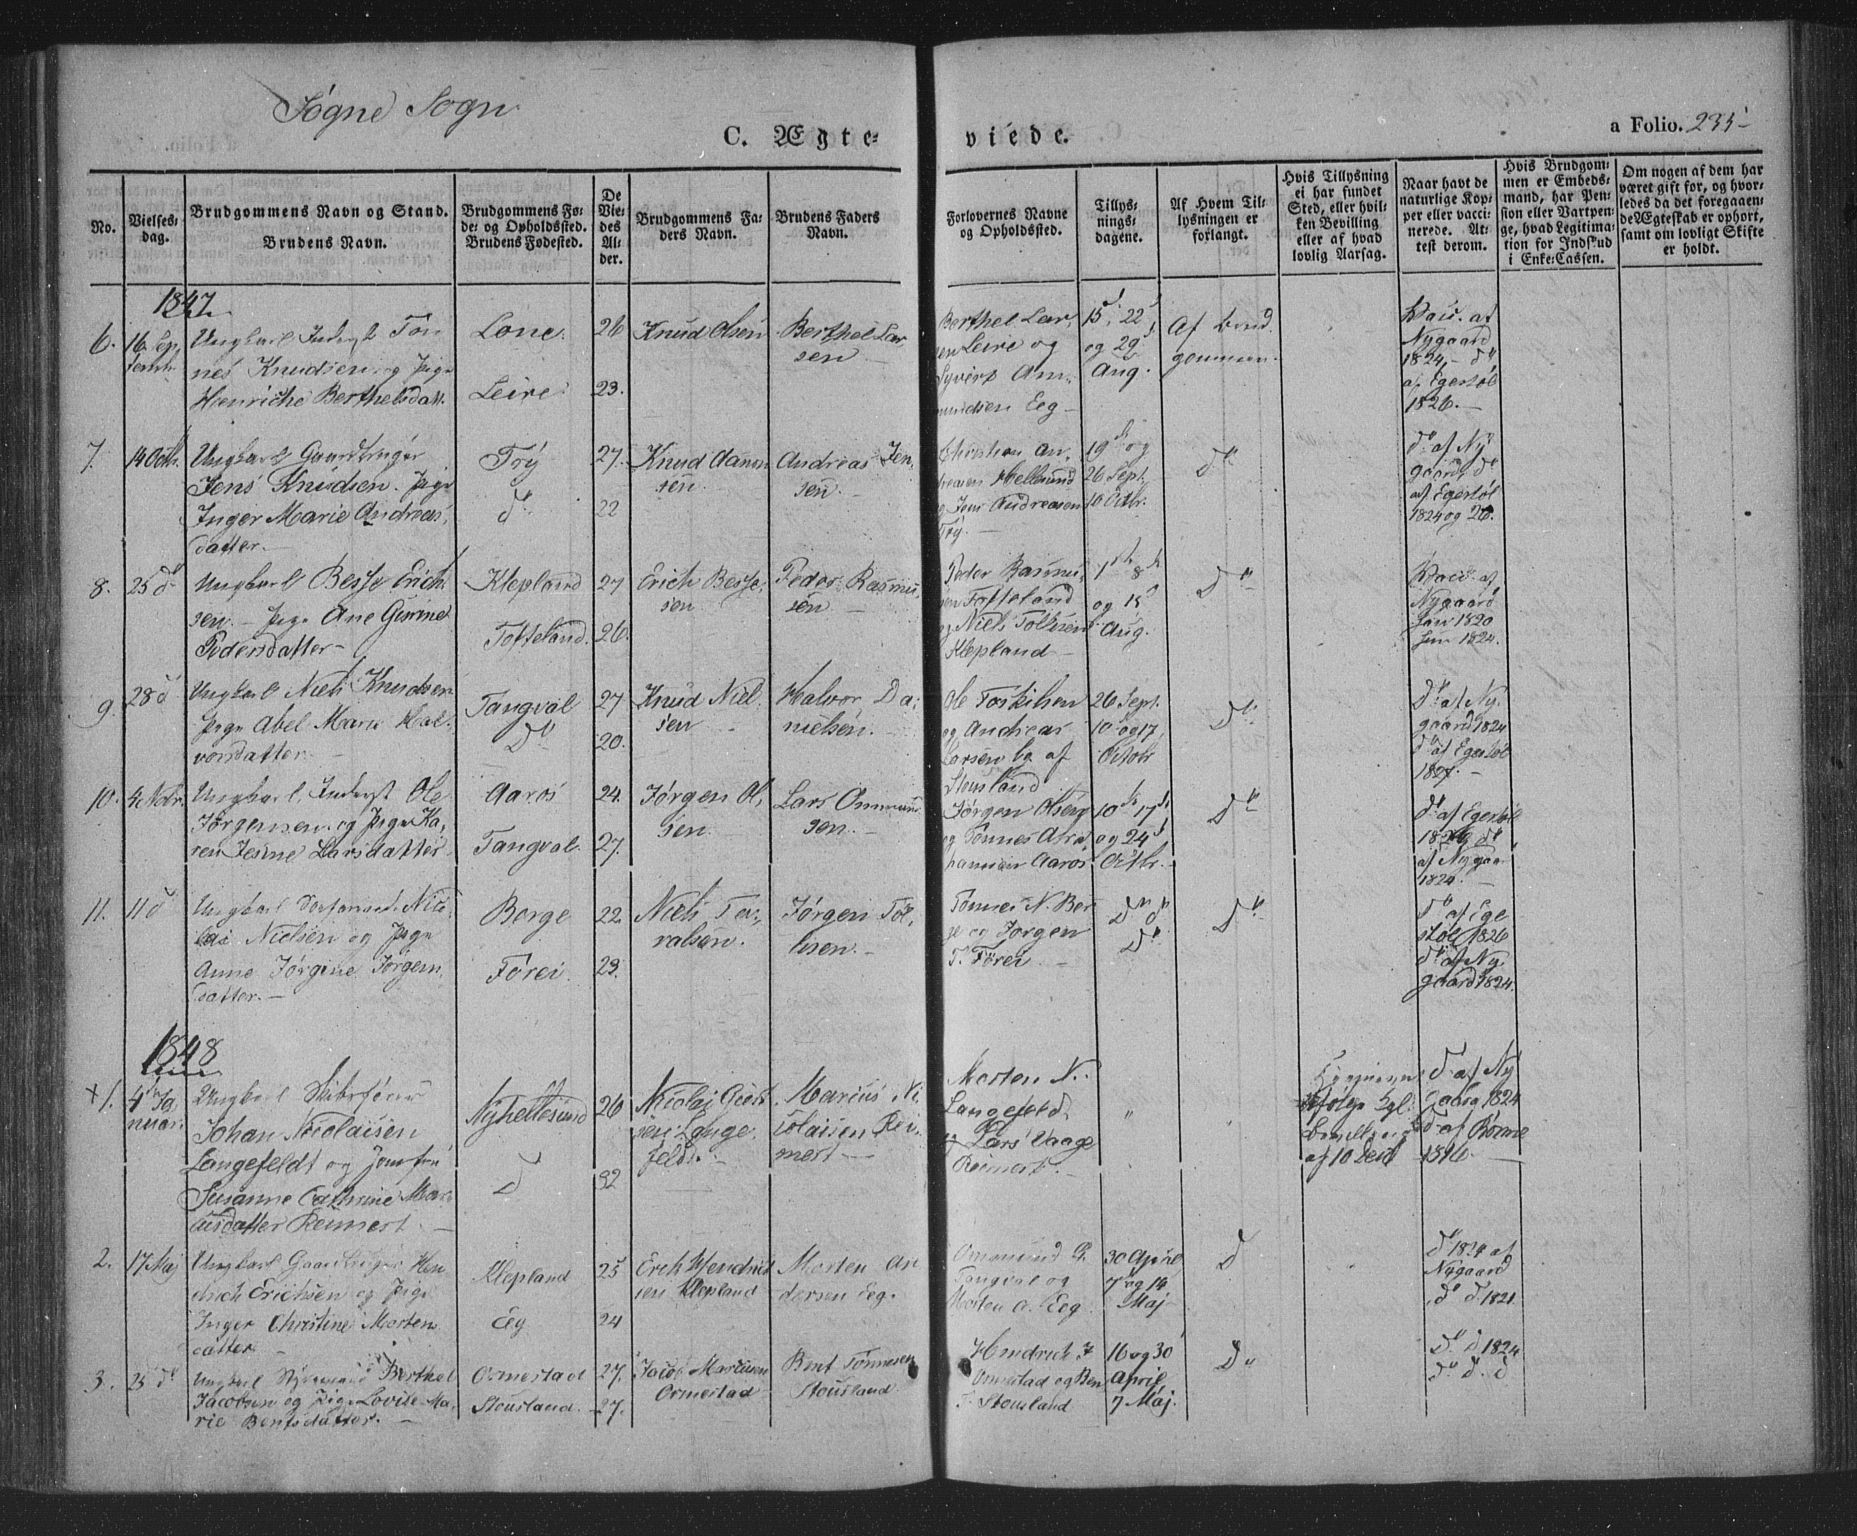 Søgne Sogn
C. Ægte-viede.
a Folio. 235
No.
Vielses-dag.
Brudgommens Navn og Stand.
Brudens Navn.
Brudgommens Fø-
de- og Opholdssted.
Brudens Fødested.
De
Vie-
des
Al-
der.
Brudgommens Fa-
ders Navn.
Brudens Faders
Navn.
Forlovernes Navne
og Opholdssted.
Tillys-
nings-
dagene.
Af Hvem Til-
lysningen er
forlangt.
Hvis Tillysning
ei har fundet
Sted, eller hvil-
ken Bevilling
eller af hvad
lovlig Aarsag.
Naar havt de
naturlige Kop-
per eller vacci-
nerede. At-
test derom.
Hvis Brudgom-
men er Embeds-
mand, har Pen-
sion eller Vartpen-
ge, hvad Legitima-
tion for Indskud
i Enke-Cassen.
Om nogen af dem har
været gift før, og hvor-
ledes da det foregaaen-
de Ægteskab er ophørt,
samt om lovligt Skifte
er holdt.
1847
6. 16 Sep
temb.
Ungkarl Inderst Tøn
nes Knudsen og Pige
Henriche Berthelsdatt.
Lone
Leire
26
23.
Knud Olsen
Berthel Lar
sen
Berthel Lar
sen Leire og
Syvert Am
mundsen Eeg
15, 22
og 29
Aug.
Af Brud
gommen
Vacc. af
Nygaard
1824, d°
af Egestøl
1826.
7. 14 Octb.
Ungkarl Gaardbruger
Jens Knudsen. Pige
Inger Marie Andreas
datter.
Try
d°
27.
22
Knud Aanen
sen
Andreas Jen
sen
Christian An
dreasen Hellesund
og Jens Andreasen
Try
19 og
26 Sept.
10 Octbr.
D°
d° af Ny
gaard, d°
af Egestøl
1824 og 26.
8. 25 d°
Ungkarl Besse Erich
sen. Pige Ane Gurine
Pedersdatter
Klepland
Tofteland.
27
26.
Erich Besse
sen
Peder Rasmu
sen
Peder Rasmu
sen Tofteland
og Niels
Klepland
1 8
og 15
Aug.
D°
Vacc. af
Nygaard
Jan 1820
Jun 1824.
9. 28 d
Ungkarl Niels Knudsen
Pige Abel Marie Hal
vorsdatter
Tangval
D°
27
20.
Knud Niel
sen
Halvor Da
nielsen.
Ole Torkilsen
og Andreas
Larsen bg af
Stousland
26 Sept.
10 og 17
Octobr
D°
D° af Ny
gaard 1824
d° af Egestøl
1827.
10. 4 Nobr.
Ungkarl Inderst Ole
Jørgensen og Pige Ka
ren Jesine Larsdatter
Aaros
Tangval
24.
27.
Jørgen Ol
sen
Lars Ommund
sen.
Jørgen Olsen
og Tønnes Abra
hamsen Aaros
10 17
og 24
Octbr.
D°
d° af Egestøl
1826 d°
af Nygaar
1824.
11. 11 d
Ungkarl Nico
lai Nielsen og Pige
Anne Jørgine Jørgens
datter.
Borge
Førei
22.
23.
Niels Tor
valsen.
Jørgen Tol
lisen.
Tønnes N. Bor
ge og Jørgen
T. Førei
D° d°
D°
D°
d° af Ege
støl 1826
d° af Ny
gaard 1824.
1848
+1. 4 Ja
nuar
Ungkarl Skibsfører
Johan Nicolaisen
Langefeldt og Jomfru
Susanne Cathrine Mari
usdatter Reimert.
Nyhellesund
D
26
32
Nicolaj Gert
sen Lange
feldt.
Marius Ni
colaisen Rei
mert
Morten N.
Langefeldt
og Lars Vaage
Reimert.
"
Kgl.
Bevilling
af 10 Decb
d° af Ny
gaard 1824
d° af Rømme
1816.
2. 17 Maj
Ungkarl Gaardbruger Hen
drich Erichsen og Pige
Inger Christine Morten
datter
Klepland
Eeg
25
24
Erch Hendrich
sen Klepland
Morten An
dersen Eeg.
Ommund R.
Tangval og
Morten A. Eeg
30 April
7 og 14
Maj
D
d° 1824 af
Nygaard
d° d° 1821.
3. 25 d°
Ungkarl Berthel
Jacobsen og Pige Lovise Ma
rie Bentsdatter.
Ormestad
Stousland.
27.
27.
Jacob Martisen
Ormestad
Bent Tønnesen
Stousland
Hendrich J
Ormestad og Ben
T. Stousland
16 og 30
April
7 Maj.
D°
D° d 1824
d° d. d